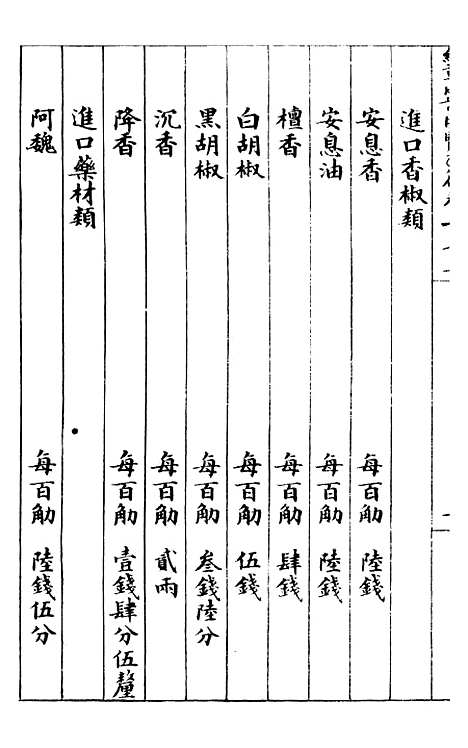 進口香椒類
安息香 每百觔 陸錢
安息油 每百觔 陸錢
檀香 每百觔 肆錢
白胡椒 每百觔 伍錢
黑胡椒 每百觔 叁錢陸分
沉香 每百觔 貳兩
降香 每百觔 壹錢肆分伍釐
進口藥材類
阿魏 每百觔 陸錢伍分